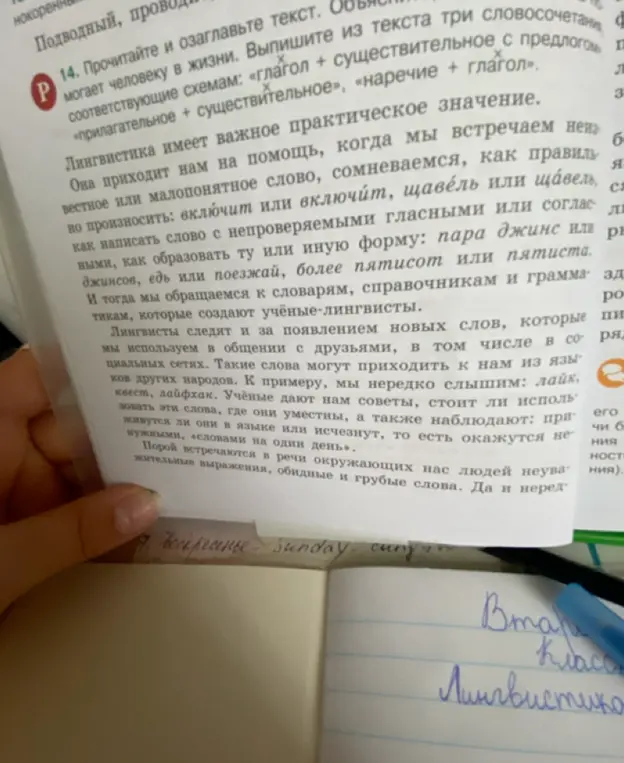 нокоренны
Подводный, проводи
Р 14. Прочитайте и озаглавьте текст. Объясн
могает человеку в жизни. Выпишите из текста три словосочетания,
соответствующие схемам: «глагол + существительное с предлогом»,
«прилагательное + существительное», «наречие + глагол».
Лингвистика имеет важное практическое значение.
Она приходит нам на помощь, когда мы встречаем неиз-
вестное или малопонятное слово, сомневаемся, как правиль-
но произносить: вклю́чит или включи́т, щаве́ль или ща́вель,
как написать слово с непроверяемыми гласными или соглас-
ными, как образовать ту или иную форму: пара джинс или
джинсов, едь или поезжай, более пятисот или пятиста.
И тогда мы обращаемся к словарям, справочникам и грамма-
тикам, которые создают учёные-лингвисты.
Лингвисты следят и за появлением новых слов, которые
мы используем в общении с друзьями, в том числе в со-
циальных сетях. Такие слова могут приходить к нам из язы-
ков других народов. К примеру, мы нередко слышим: лайк,
квест, лайфхак. Учёные дают нам советы, стоит ли исполь-
зовать эти слова, где они уместны, а также наблюдают: при-
живутся ли они в языке или исчезнут, то есть окажутся не-
нужными, «словами на один день».
Порой встречаются в речи окружающих нас людей неува-
жительные выражения, обидные и грубые слова. Да и неред-
Воскресенье - Sunday -
Втор
Класс
Лингвистика